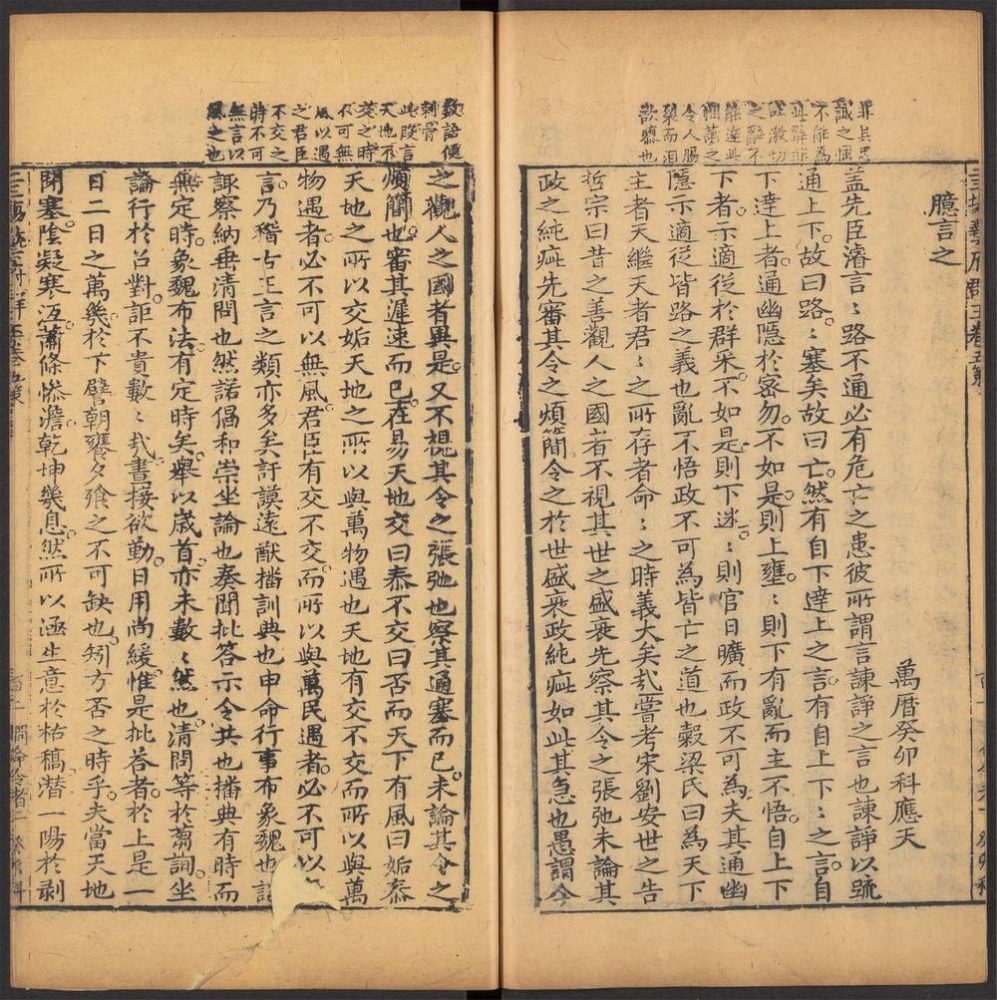 罪與忠
誠之悃
不能為
令人腸
裂而淚
欲墮也
臆言之
萬曆癸卯科應天
蓋先臣濬言：路不通必有危亡之患彼所謂言諫諍之言也諫諍以號
通上下。故曰路：塞矣故曰亡。然有自下達上之言。有自上下：之言。自
下達上者。通幽隱於密勿。不如是則上壅：則下有亂而主不悟。自上下
下者。示適從於群寀。不如是則下迷：則官日曠而政不可為。夫其通幽
隱示適從皆路之義也亂不悟政不可為皆亡之道也穀梁氏曰為天下
主者天繼天者君：之所存者命：之時義大矣哉嘗考宋劉安世之告
哲宗曰昔之善觀人之國者不視其世之盛衰先察其令之張弛未論其
政之純疵先審其令之煩簡令之於世盛衰政純疵如此其急也愚謂今
數語便
刺骨
此段言
天地不
交之時
不可無
風以遇
之君臣
不交之
時不可
無言以
風之也
之觀人之國者異是。又不視其令之張弛也察其通塞而已。未論其令之
煩簡也。審其遲速而已。在易天地交曰泰不交曰否而天下有風曰姤泰
天地之所以交姤天地之所以與萬物遇也天地有交不交而所以與萬
物遇者。必不可以無風。君臣有交不交。而所以與萬民遇者。必不可以
言。乃稽古王言之類亦多矣訏謨遠猷播訓典也申命行事布象魏也
諏察納垂清問也然諾倡和崇坐論也奏聞批答示令共也播典有時而
無定時。象魏布法。有定時矣。舉以歲首。亦未數：然也。清問等於芻詢。坐
論行於召對。詎不貴數：哉。晝接欲勤。日用尚緩。惟是批答者。於上是一
日二日之萬幾。於下譬朝饔夕飧之不可缺也。矧方否之時乎。夫當天地
閉塞。陰凝寒沍。蕭條慘澹。乾坤幾息。然所以涵生意於枯稿潛一陽於剥